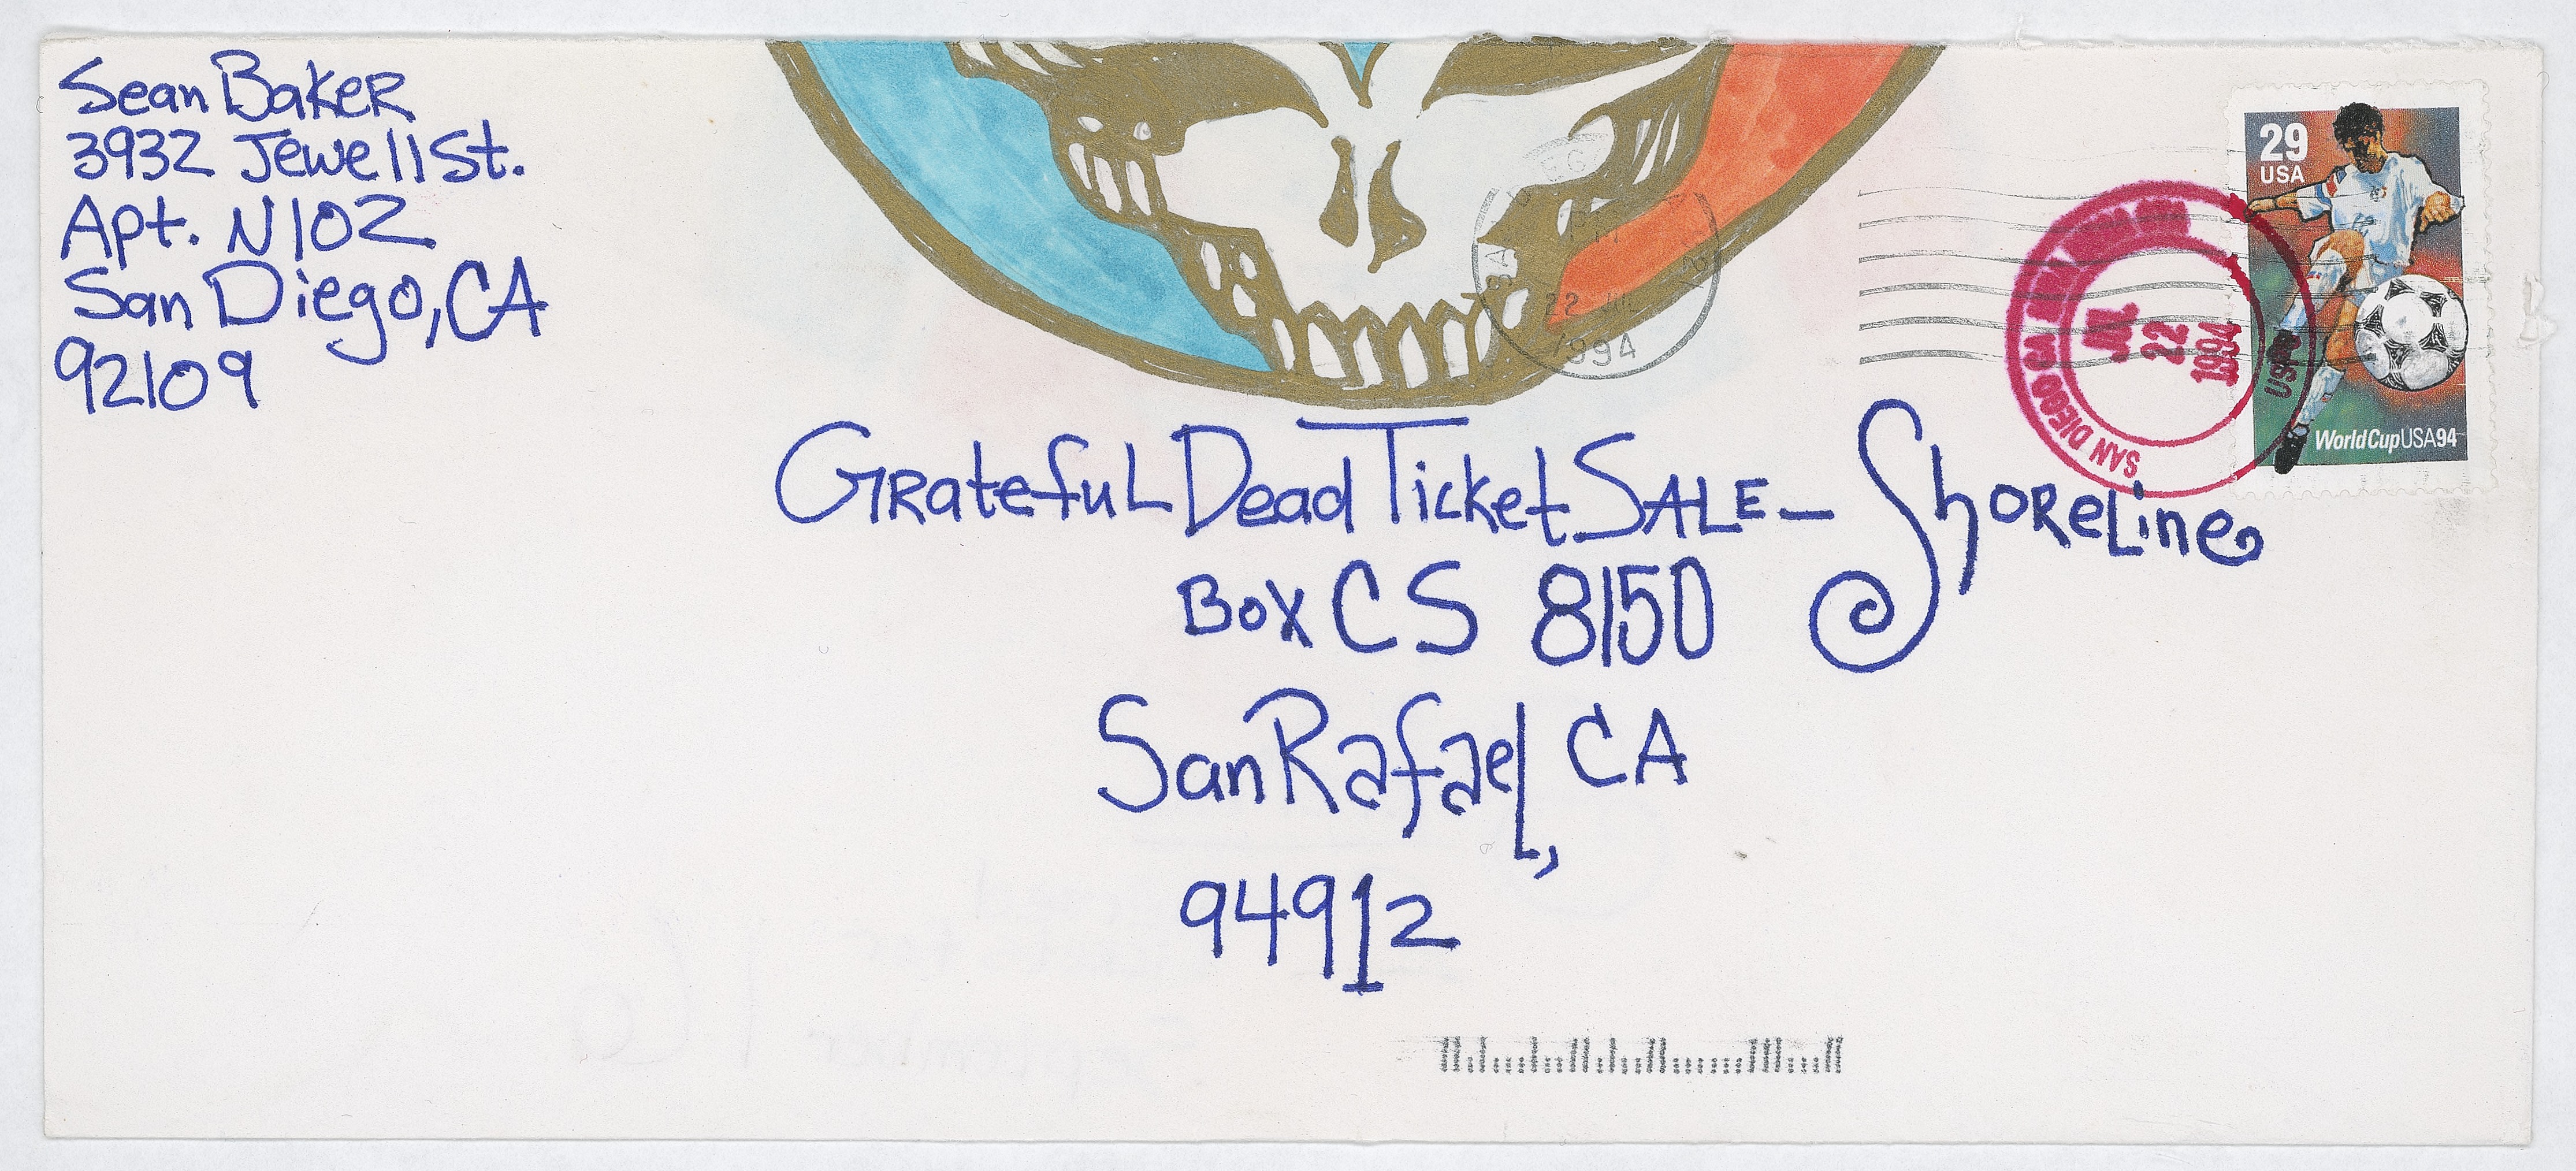 Sean Baker
3932 Jewell St.
Apt. N102
San Diego, CA
92109
29
USA
World Cup USA 94
SAN DIEGO CA
JUL
22
1994
USPS
22 JUL
1994
Grateful Dead Ticket SALE - Shoreline
Box CS 8150
San Rafael, CA
94912